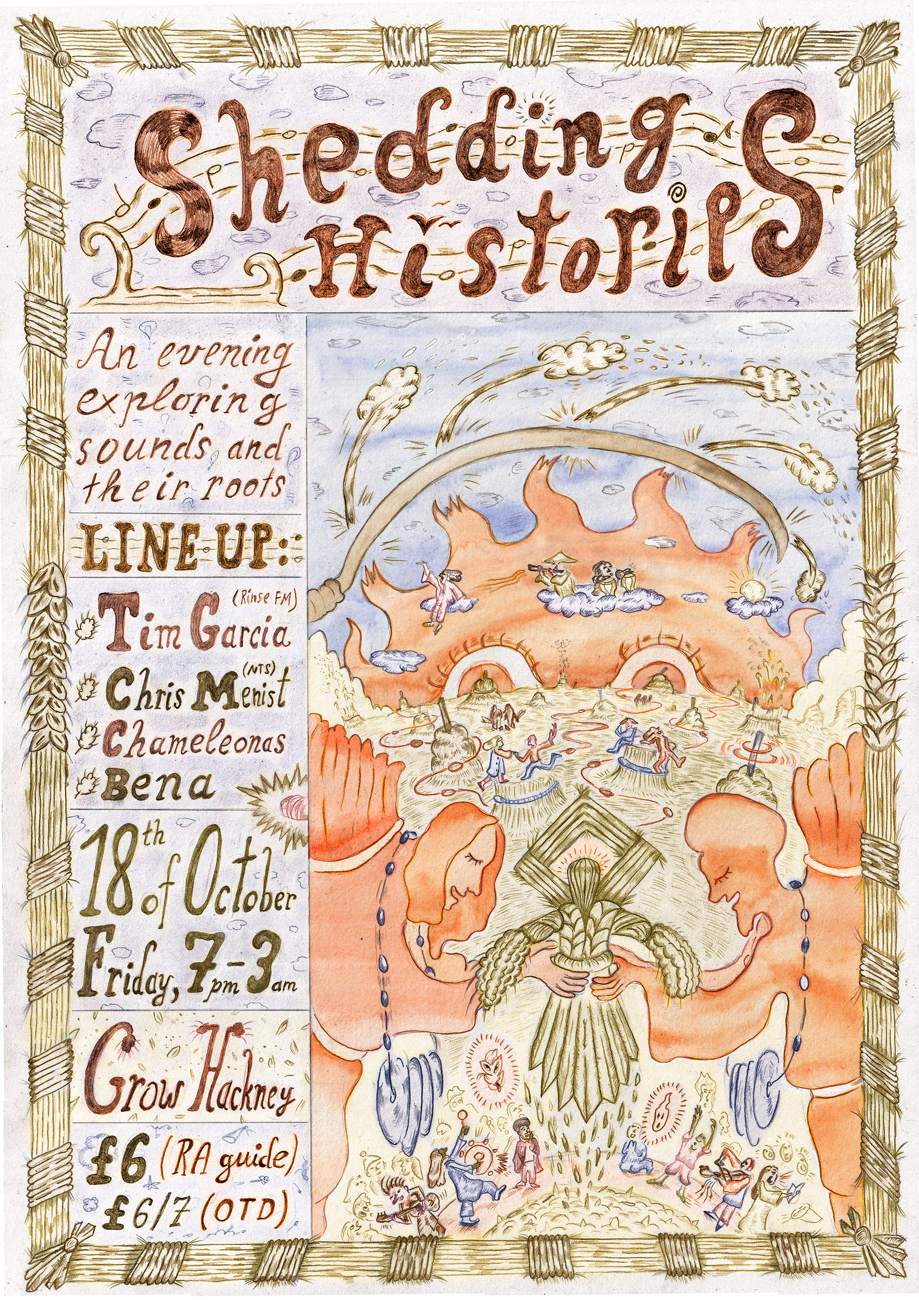 Shedding
Histories
An evening
exploring
sounds and
their roots
LINE UP:
Tim Garcia (Rinse FM)
Chris Menist (NTS)
Chameleonas
Bena
18th
of October
Friday, 7pm-3am
Grow Hackney
£6 (RA guide)
£6/7 (OTD)